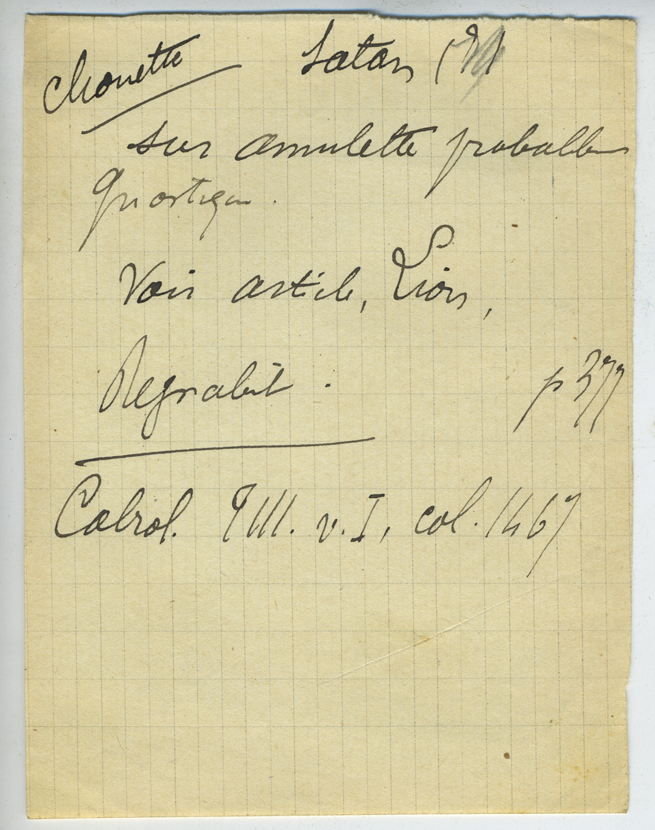 Chouette Satan (?)
sur amulette probabl
Gnostique.
Voir article, Lion,
Regnabit. p 377
Cabrol. T III. v. I, col. 1467